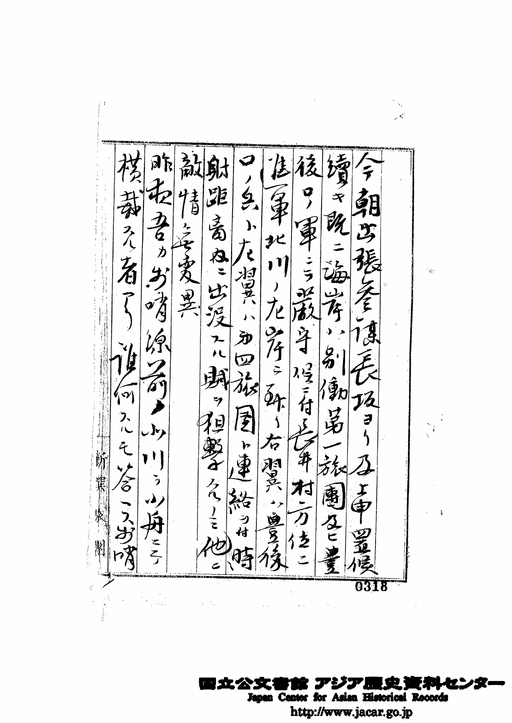 今朝出張参謀長坂ヨリ及上申置候
續キ既ニ海岸ハ別働第一旅團及ヒ豊
後口ノ軍ニテ嚴守候ニ付長井村ノ方位ニ
進軍北川ノ左岸ニ到リ右翼ハ豊後
口ノ兵ト左翼ハ第四旅團ト連絡シ時
射距離内ニ出没スル賊ヲ狙撃スルノミ他ニ
敵情無変異
昨夜吾カ前哨線前ノ小川ヲ小舟ニテ
横裁スル者アリ誰何スルモ答ヘス前哨
0318
国立公文書館 アジア歴史資料センター
Japan Center for Asian Historical Records
http://www.jacar.go.jp